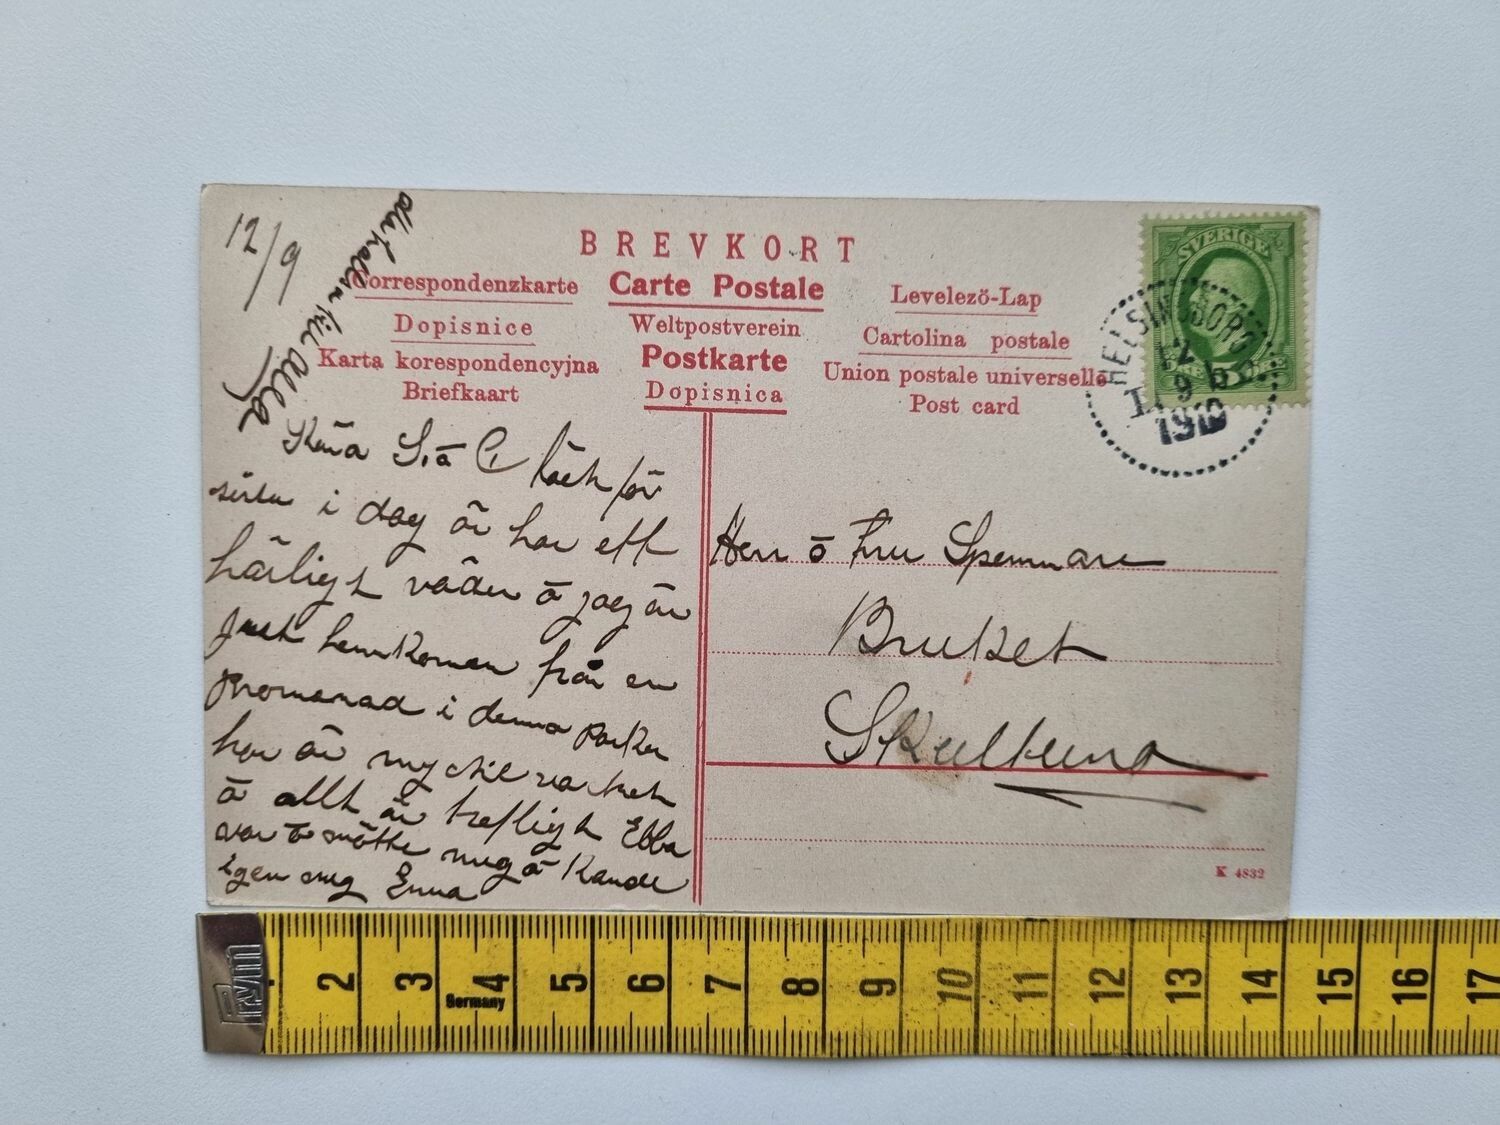 12/9
BREVKORT
Correspondenzkarte
Carte Postale
Levelezö-Lap
Dopisnice
Weltpostverein
Cartolina postale
Karta korespondencyjna
Postkarte
Union postale universelle
Briefkaart
Dopisnica
Post card
SVERIGE
HELSINGBORG
12
9
1910
Kära S. ō C. tack för
sista i dag är har ett
härligt väder ō jag är
just hemkomen från en
promenad i denna parken
har är mycket vackert
ō allt är trefligt Ebba
var ō mötte mig ō kände
igen mig Enna
Herr ō Fru Spennare
Bruket
Skultuna
K 4832
Prym
Germany
2 3 4 5 6 7 8 9 10 11 12 13 14 15 16 17